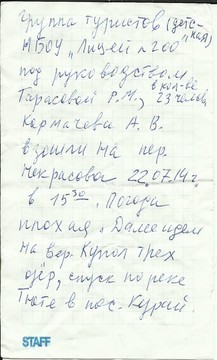 группа туристов (детс-
МБОУ "Лицей № 200" кая)
под руководством
в кол-ве
Тарасовой Р.М., 23 человек
Кормачева А. В.
взошли на пер.
Некрасова 22.07.14г.
в 15³⁰. Погода
плохая. Далее идем
на Вер. Купол трех
озёр, спуск по реке
Тюте в пос.
STAFF